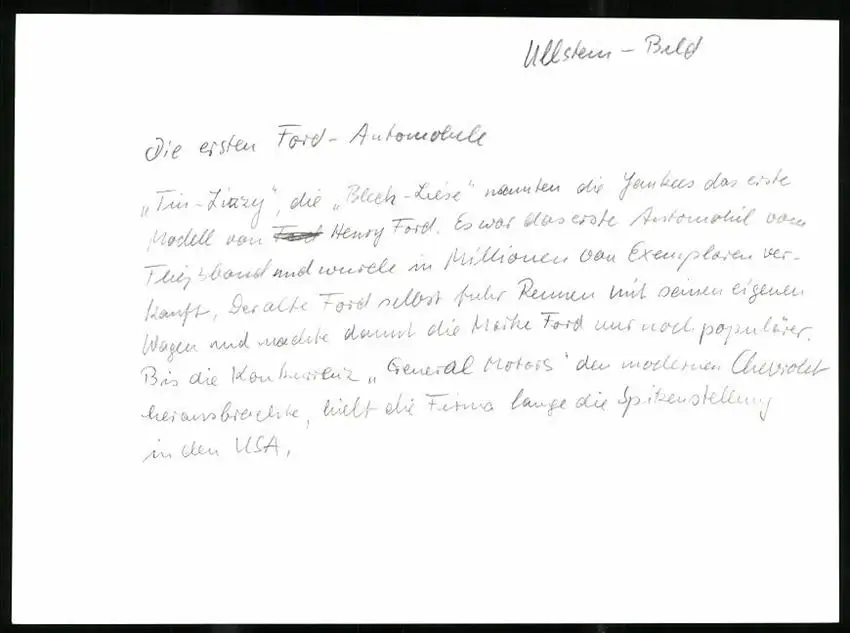 Ullstein - Bild
Die ersten Ford - Automobile
„Tin-Lizzy", die „Blech-Liese" nannten die Yankees das erste
Modell von Ford Henry Ford. Es war das erste Automobil vom
Fließband und wurde in Millionen von Exemplaren ver-
kauft. Der alte Ford selbst fuhr Rennen mit seinen eigenen
Wagen und machte damit die Marke Ford nur noch populärer.
Bis die Konkurrenz „General Motors" den modernen Chevrolet
herausbrachte, hielt die Firma lange die Spitzenstellung
in den USA.